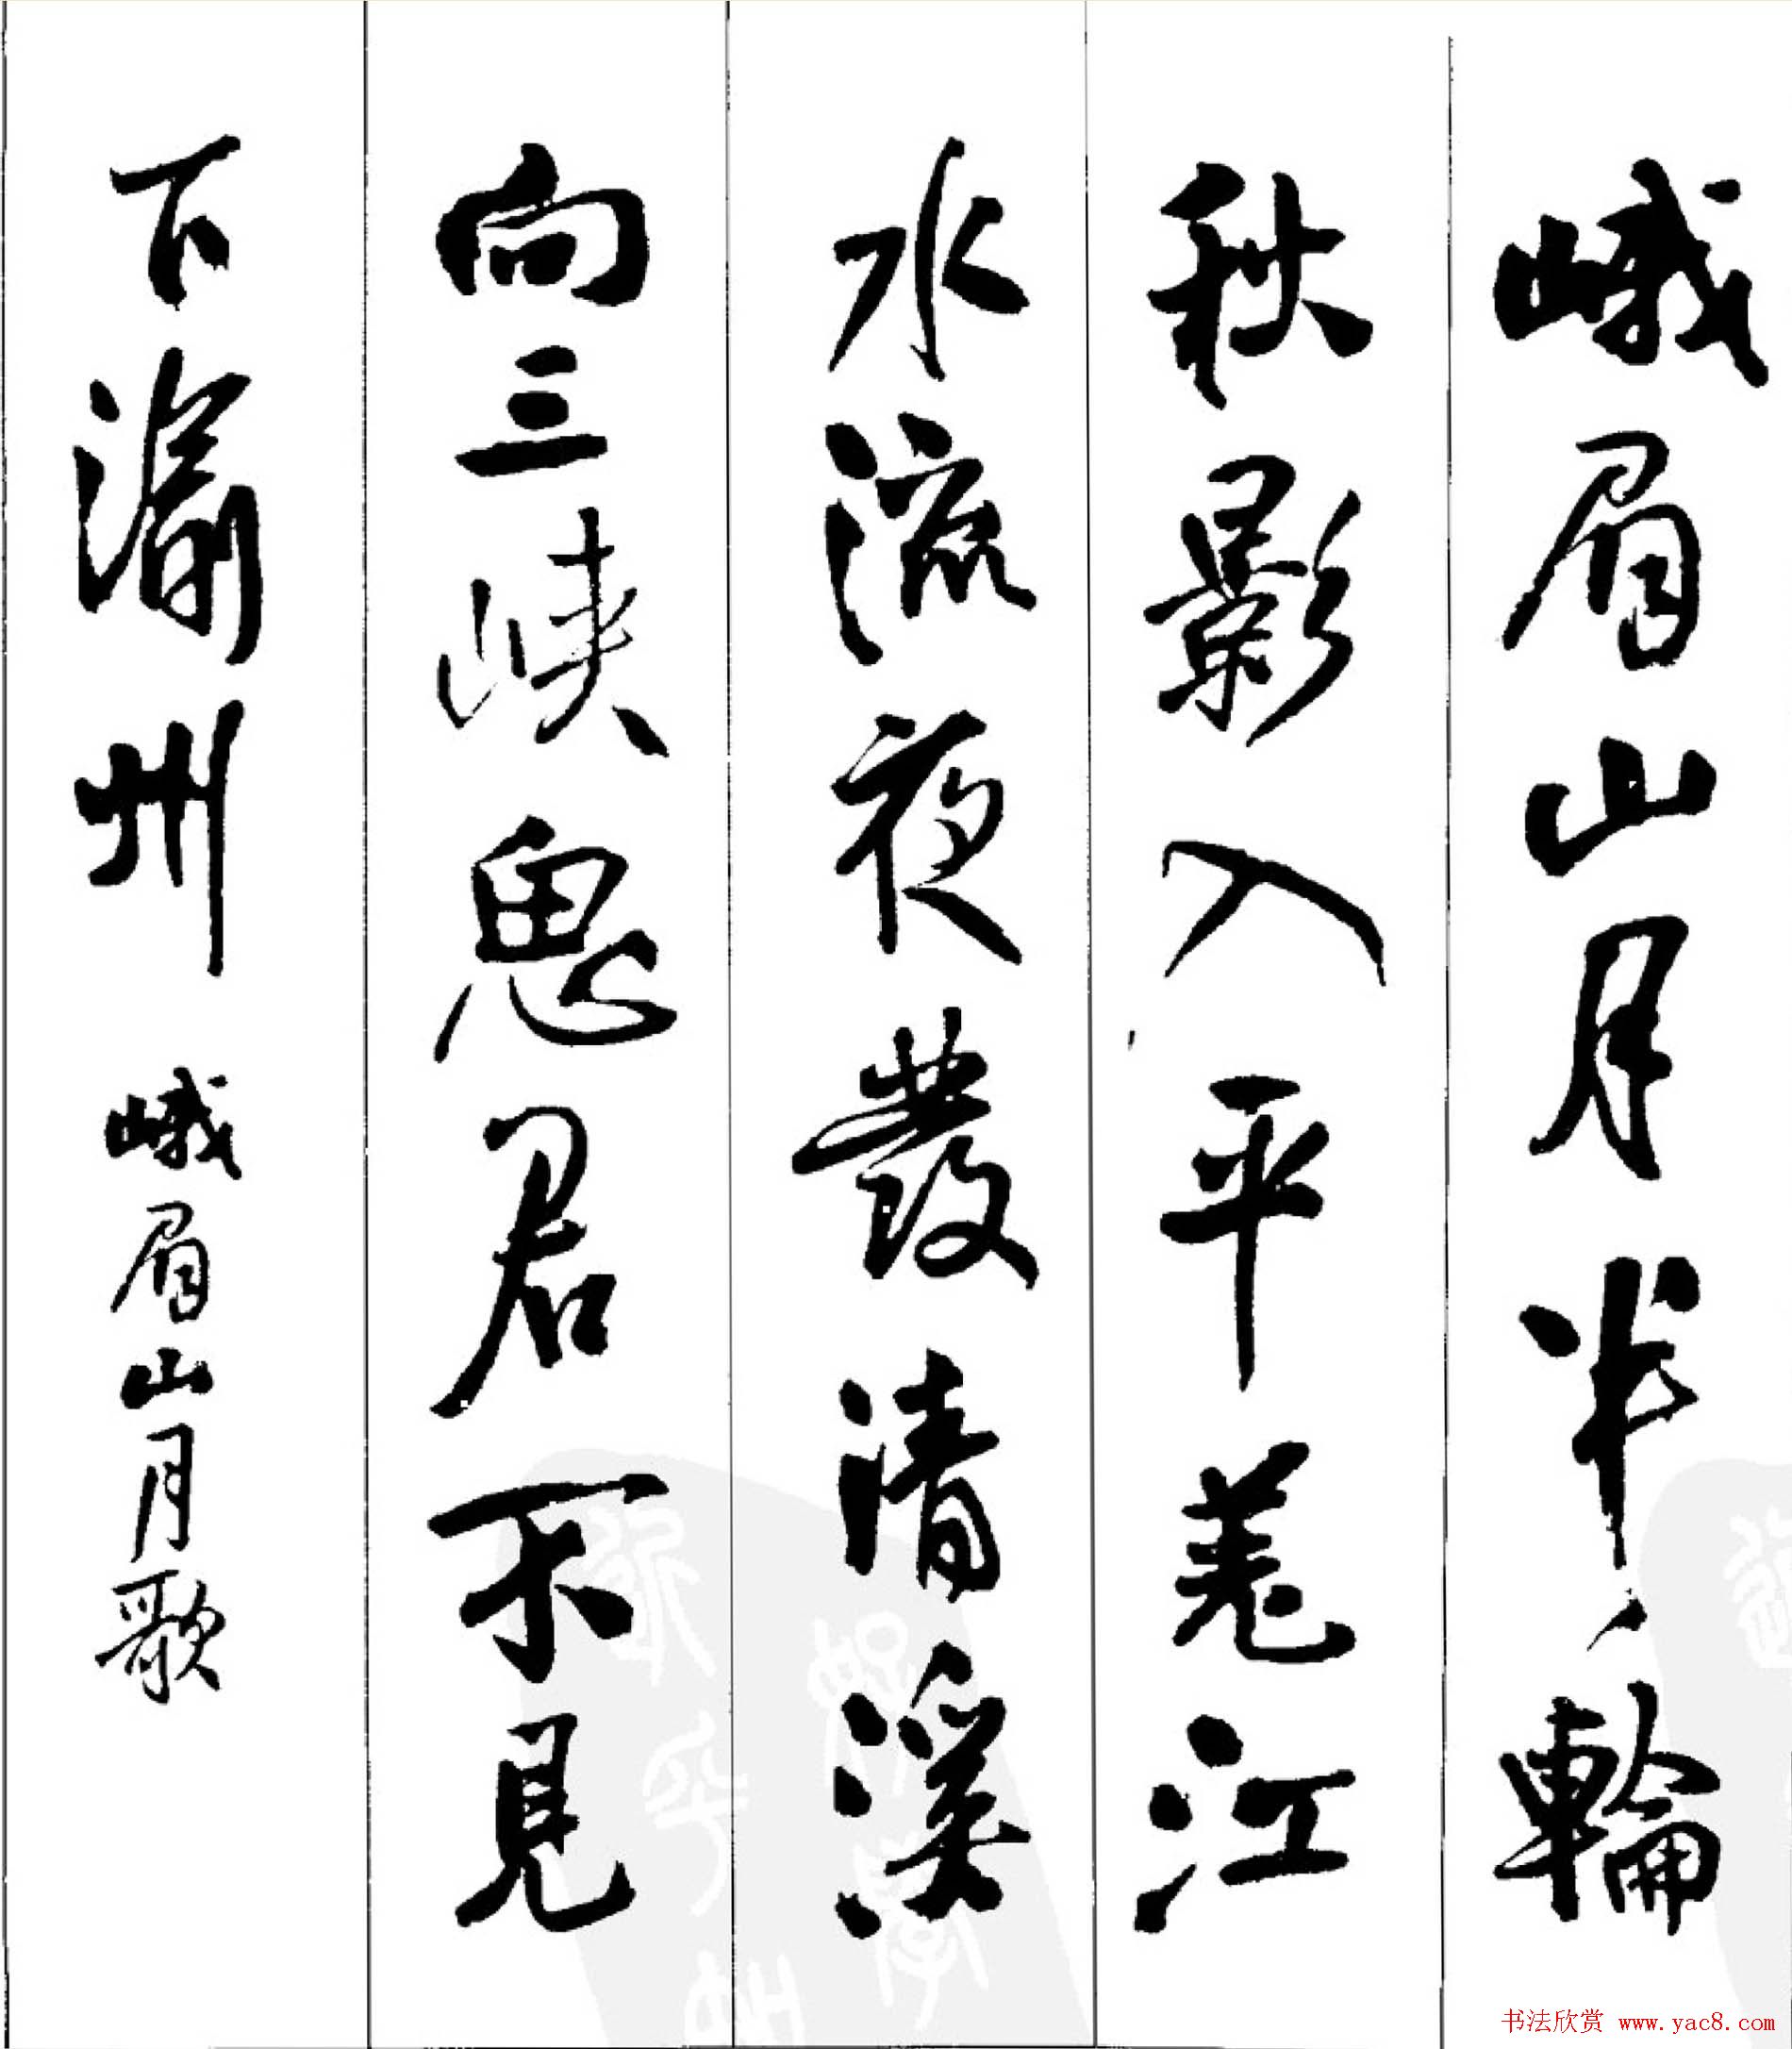 峨眉山月半輪
秋影入平羌江
水流夜發清溪
向三峽思君不見
下渝州 峨眉山月歌
书法欣赏 www.yac8.com